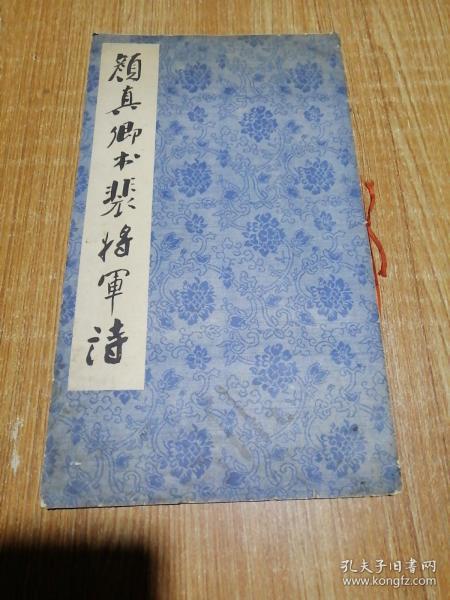 顔真卿书裴将軍诗
孔夫子旧书网
www.kongfz.com